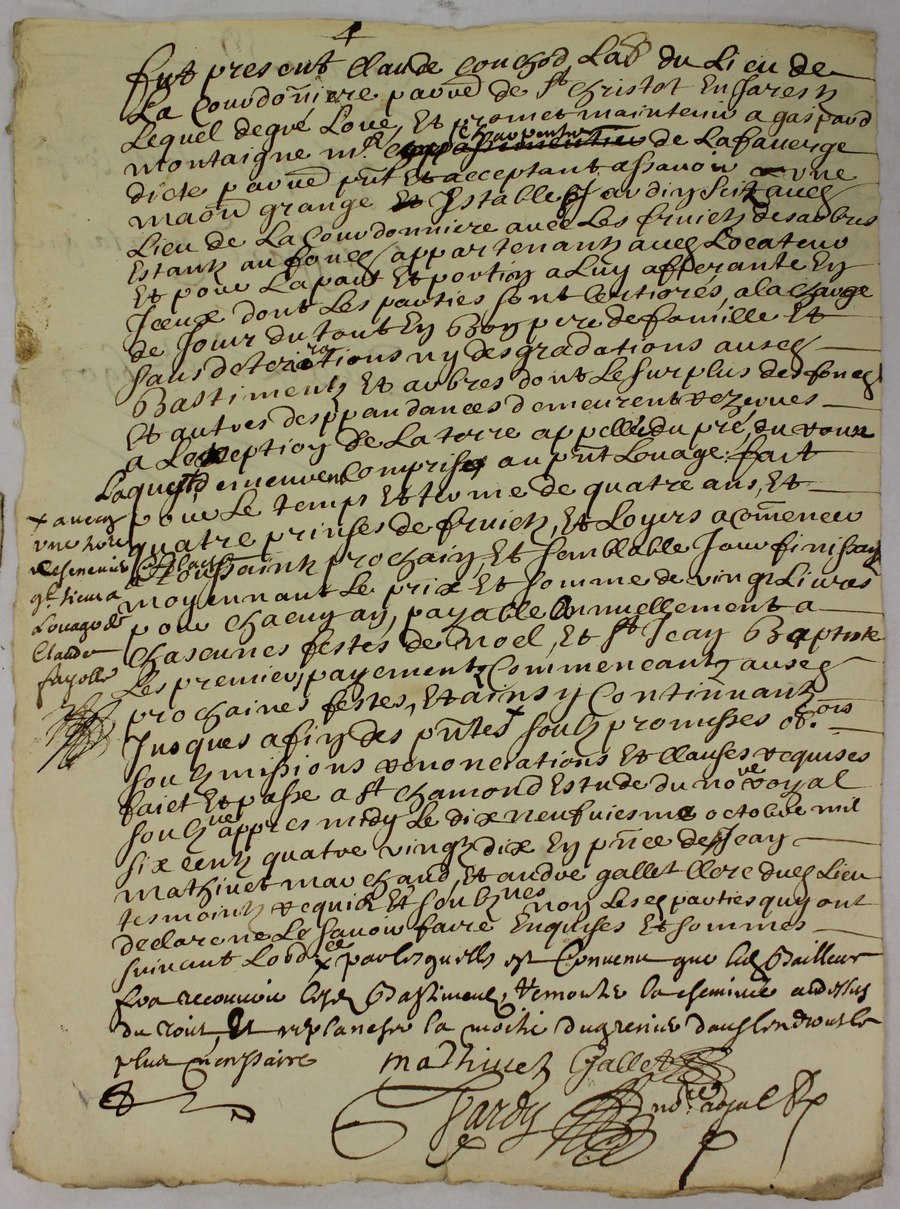 4
fut present Claude Couchod, Lab^r du Lieu de
La Courdonniere parr̃e de S^t Christot En Jarestz
Lequel de gré Loue, Et promet maintenir a gaspard
montaigne m^e charpentier de Lafaverge
dicte parr̃e pñt Et acceptant, assavoir une
maõn grange Et Establę Jardin Seitz aud
Lieu de La Courdonniere avec Les fruictz des arbres
Estantz au fondz appartenantz aud Locateur
Et pour La part Et portion a Luy afferante En
Jceux dont Les parties sont Certiores, a la charge
de Jouir du tout En Bon pere de famille Et
sans deteriorations ny desgradations ausd
Bastimentz Et arbres dont Le surplus des fondz
Et autres desppandances demeurent rezerves
a Lexception de La terre appellée du pré, du
Laquelle demeure Comprise au pñt Louage. fait
pour Le temps Et terme de quatre ans, Et
quatre prinses de fruictz, Et Loyers a Comẽncer
a la Toussaintz prochain, Et semblable Jour finissant
moyennant Le prix Et somme de vingt Livres
pour chacun an, payable Annuellement a
chascunes festes de Noel, Et S^t Jean Baptiste
Les premiers payementz Commenceantz ausd
prochaines festes, Et ainsy Continuantz
Jusques a fin des pñtes x soubz promesses ob^ons
soubzmissions renonciations Et Clauses requises
faict Et passé a S^t Chamond Estude du no^re Royal
soubz^ne appres midy Le dixneufviesme octobre mil
six Centz quatre vingtz dix En pñce de s^r Jean
mathivet marchand, Et andré gallet Clerc dud Lieu
tesmointz requis Et soubz^nes non Lesd parties quy ont
declare ne Le savoir faire Enquises Et sommes
suivant Lord^ce x par lesquelles est Convenu que led Bailleur
fera recouvrir lesd Bastimens, remonter la cheminée audessus
du toit, Et replancher la moitié du grenier dans lendroit le
plus necessaire
x avec
une
Cheneviere
q^l tient a
Louage de
Claude
fayolle
mathivet Gallet
Hardy no^re royal